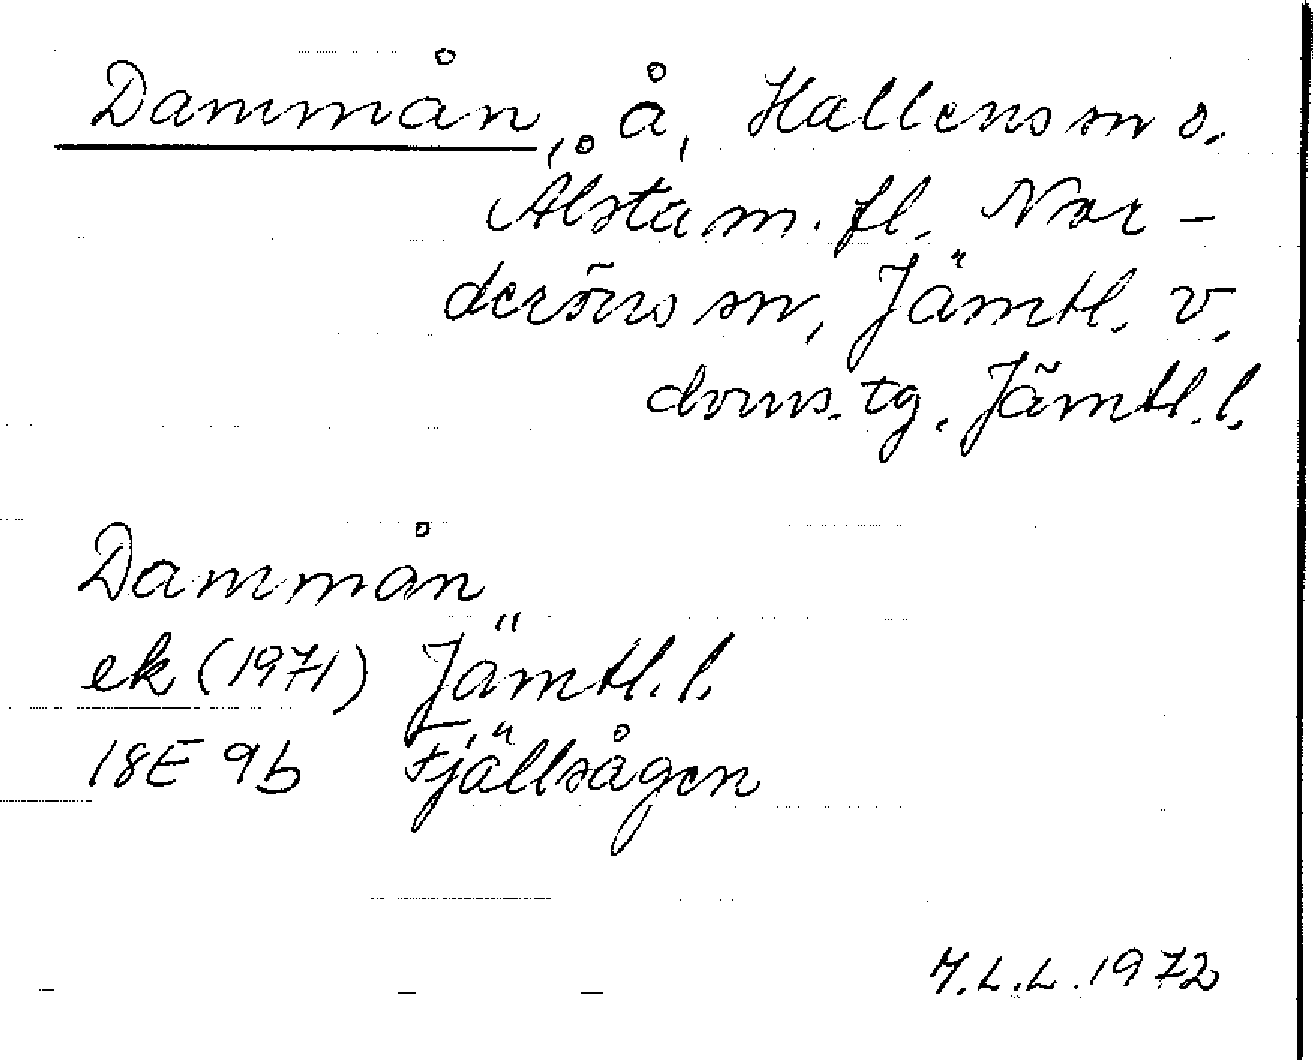 Dammån, å, Hallens sn o.
Ålsta m. fl. Nor-
deröns sn, Jämtl. v.
doms. tg. Jämtl. l.
Dammån
ek (1971) Jämtl. l.
18E 9b Fjällsågen
M.L.L. 1972